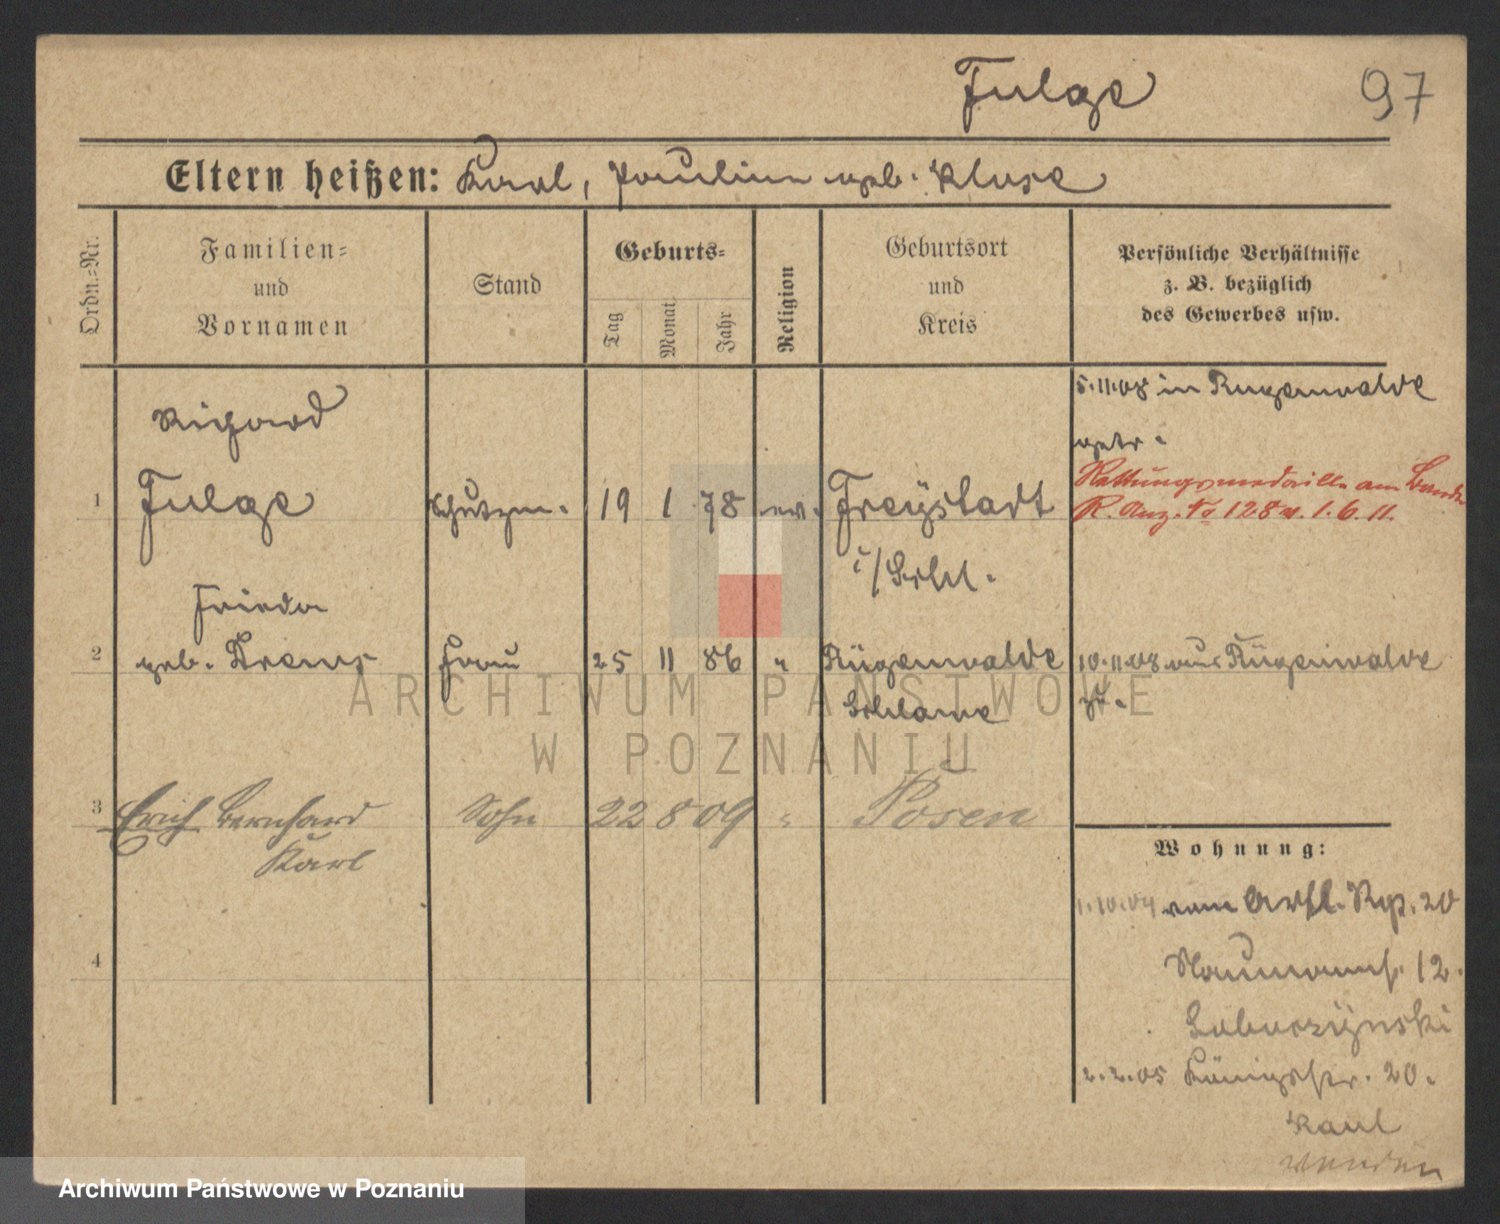 Fulge 97
Eltern heißen: Karl, Pauline geb. Kluse
Ordn.=Nr.
Familien=
und
Vornamen
Stand
Geburts=
Tag
Monat
Jahr
Religion
Geburtsort
und
Kreis
Persönliche Verhältnisse
z. B. bezüglich
des Gewerbes usw.
Richard
5.11.08 in Rügenwalde
getr.
1 Fulge Schutzm. 19 1 78 ev. Freystadt
i/Schl.
Rettungsmedaille am Bande
R. Anz. No 128 v. 1.6.11.
Frieda
2 geb. Drews Frau 25 11 86 " Rügenwalde
Schlawe
10.11.08 aus Rügenwalde
3 Erich Bernhard Sohn 22 8 09 " Posen
Karl
4
Wohnung:
1.10.04 vom 20
Naumannst. 12.
2.2.05 Königstr. 20.
Kaul
wenden
ARCHIWUM PAŃSTWOWE
W POZNANIU
Archiwum Państwowe w Poznaniu